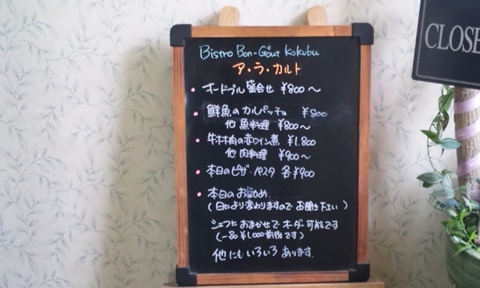 Bistro Bon-Goût Kokubu
ア・ラ・カルト
• オードブル盛合せ ¥800〜
• 鮮魚のカルパッチョ ¥800
他 魚料理 ¥800〜
• 牛ホホ肉の赤ワイン煮 ¥1.800
他 肉料理 ¥900〜
• 本日のピザ・パスタ 各¥900
• 本日のお勧め
(日により変わりますので お聞き下さい)
シェフにおまかせで オーダー可能です
(一品 ¥1,000前後です)
他にもいろいろ あります.
CLOSE